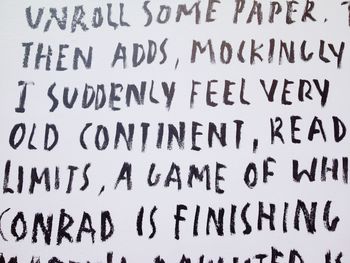 UNROLL SOME PAPER.
THEN ADDS, MOCKINGLY
I SUDDENLY FEEL VERY
OLD CONTINENT, READ
LIMITS, A GAME OF WHI
CONRAD IS FINISHING
IS